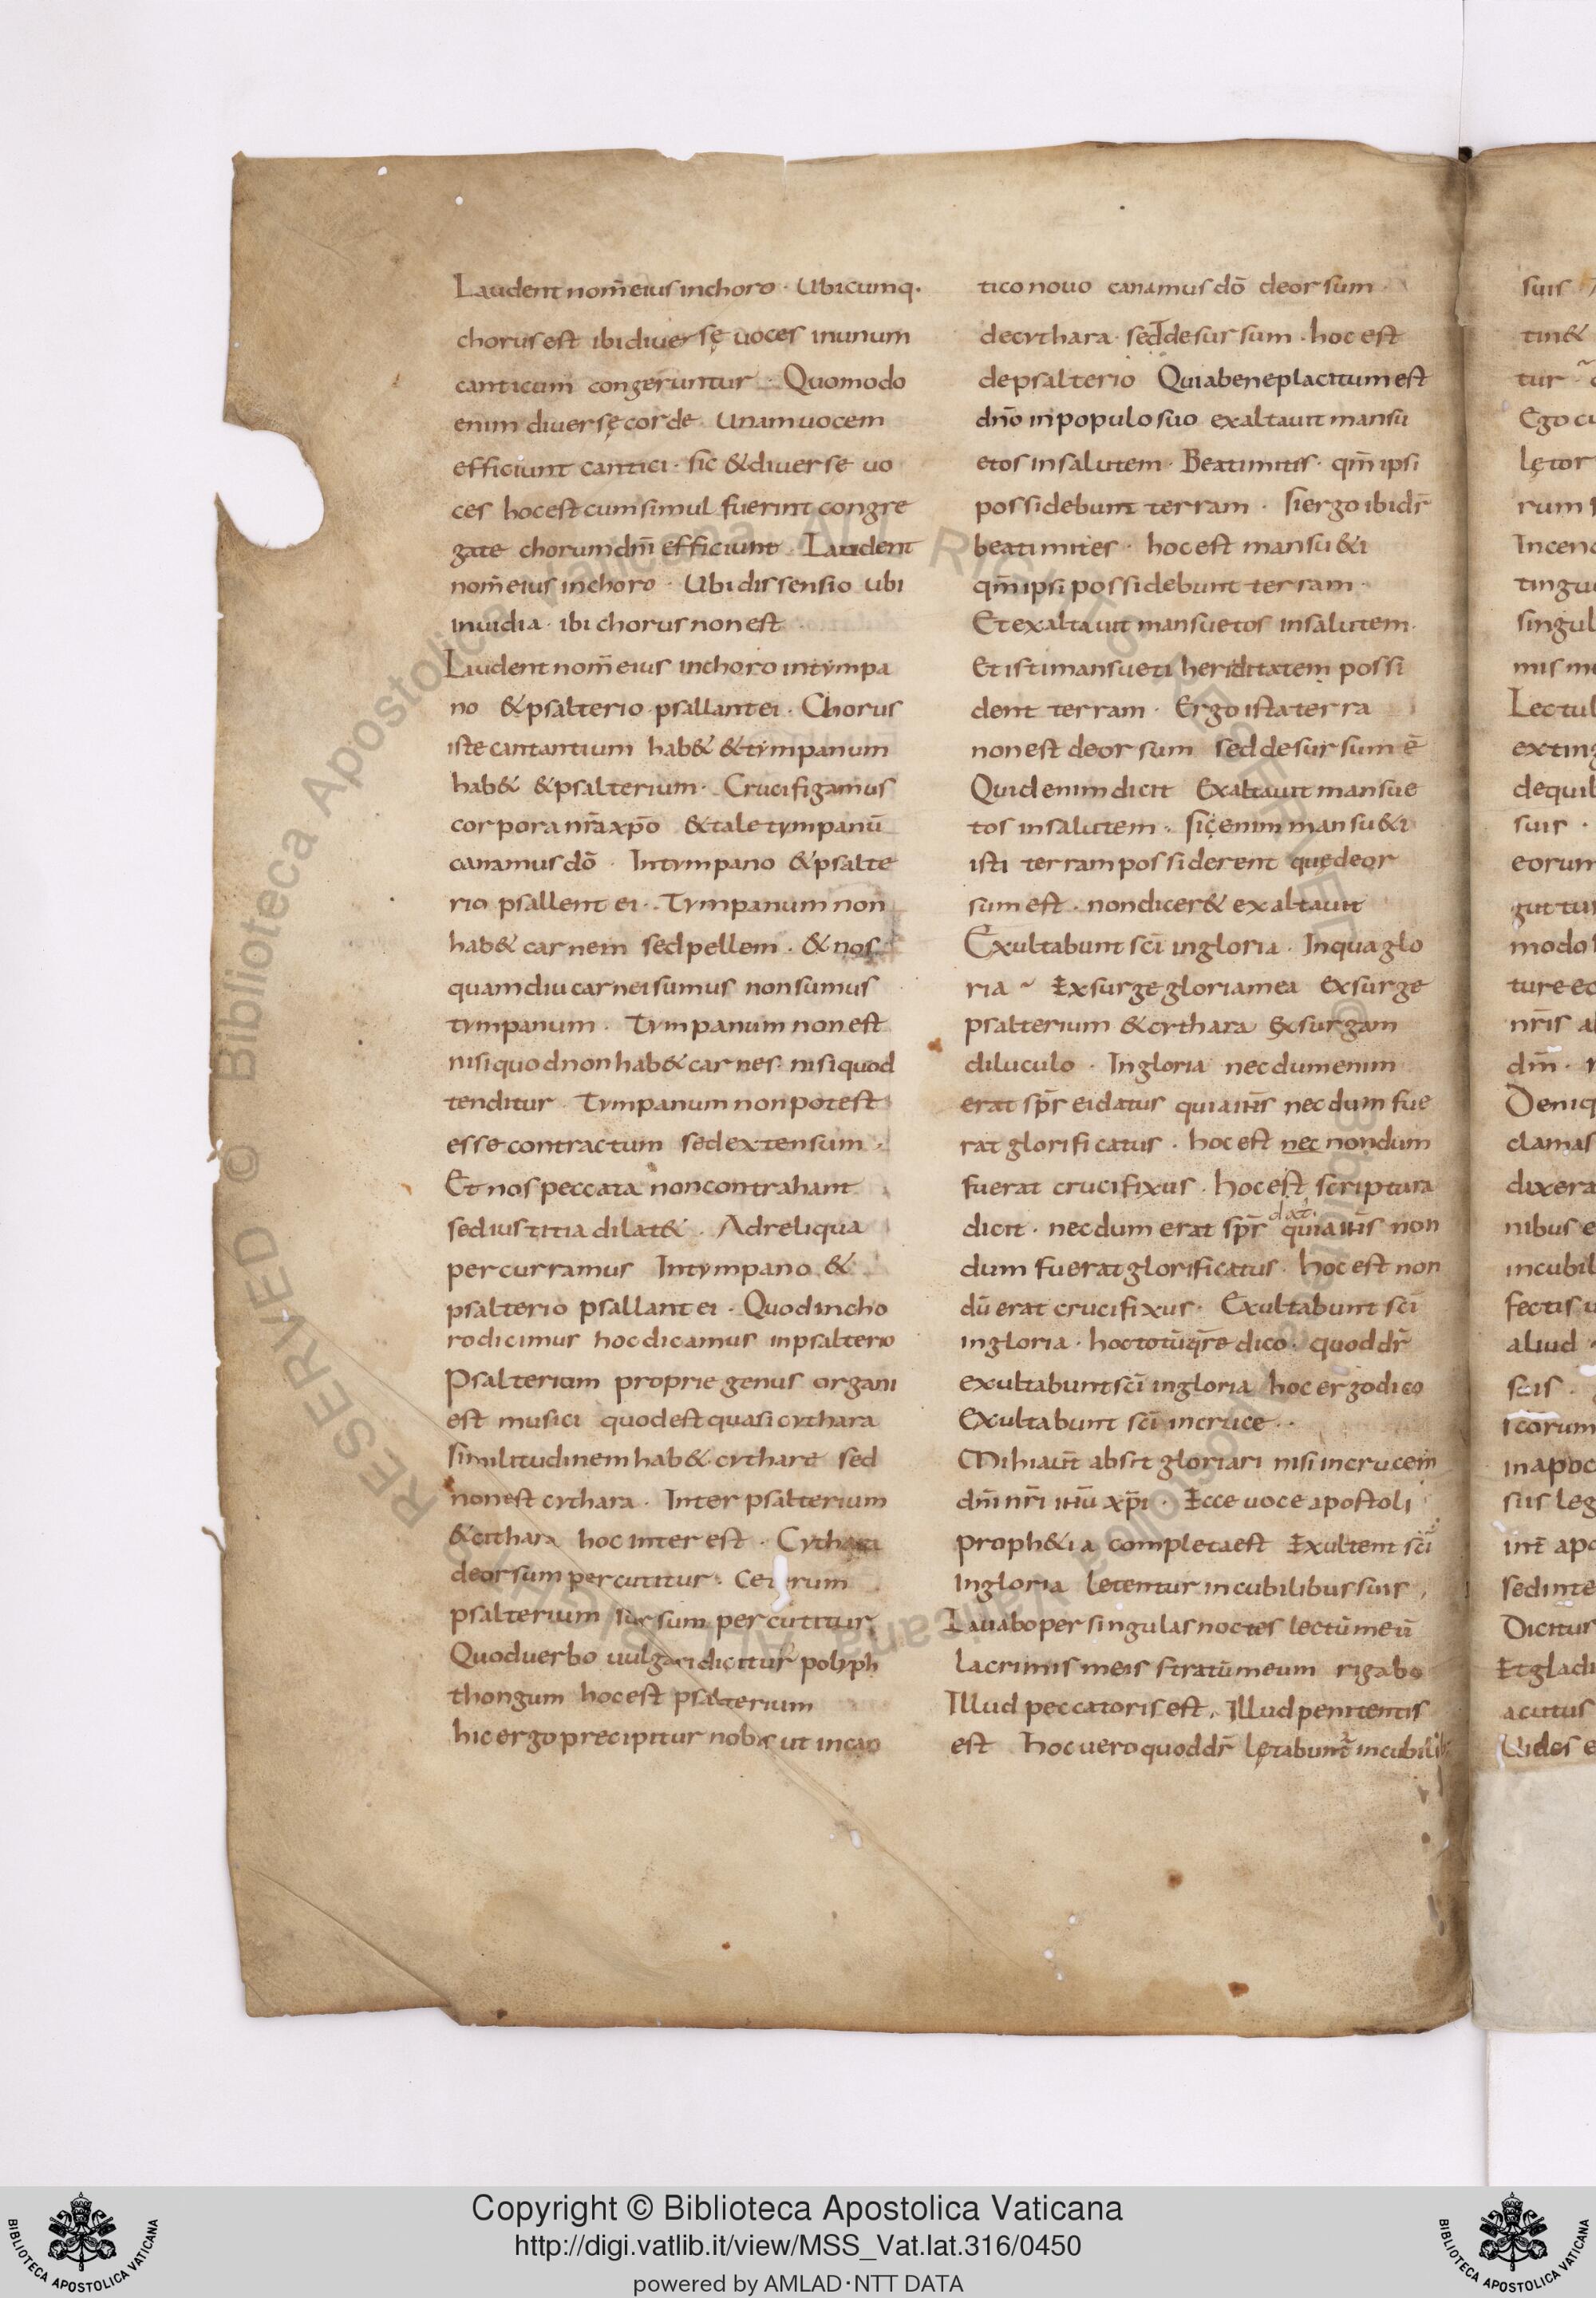 Laudent nom̄ eius inchoro · Ubicumq·
chorus est ibi diuersę uoces inunum
canticum congeruntur · Quomodo
enim diuersę corde · unam uocem
efficiunt cantici · sic & diuerse uo
ces hoc est cum simul fuerint congre
gate chorum dm̄ efficiunt · Laudent
nom̄ eius inchoro · Ubi dissensio ubi
inuidia · ibi chorus non est
Laudent nom̄ eius inchoro intympa
no & psalterio psallant ei · Chorus
iste cantantium hab& & tympanum
hab& & psalterium · Crucifigamus
corpora nr̄a xp̄o & tale tympanū
canamus dō · Intympano & psalte
rio psallent ei · Tympanum non
hab& carnem sed pellem · & nos
quamdiu carnei sumus non sumus
tympanum · Tympanum non est
nisi quod non hab& carnes · nisi quod
tenditur · Tympanum non potest
esse contractum sed extensum ·
Et nos peccata non contrahant
sed iustitia dilat& · Ad reliqua
percurramus Intympano &
psalterio psallant ei · Quod incho
ro dicimus hoc dicamus inpsalterio
Psalterium proprie genus organi
est musici quod est quasi cythara
similitudinem hab& cythare sed
non est cythara · Inter psalterium
& cithara hoc inter est · Cythara
deorsum percutitur · Ceterum
psalterium sursum percutitur
Quod uerbo uulgari dicitur polyph
thongum hoc est psalterium
hic ergo precipitur nobis ut incan
tico nouo canamus dō deorsum
decythara · sed desursum · hoc est
depsalterio Quia beneplacitum est
dn̄o inpopulo suo exaltauit mansu
etos insalutem · Beati mitis · qm̄ ipsi
possidebunt terram · si ergo ibi dr̄
beati mites · hoc est mansu&i
qm̄ ipsi possidebunt terram ·
Et exaltauit mansuetos insalutem ·
Et isti mansueti heriditatem possi
dent terram · Ergo ista terra
non est deorsum sed desursum ē
Quid enim dicit Exaltauit mansue
tos insalutem · sic enim mansu&i
isti terram possiderent quę deor
sum est · non dicer& exaltauit
Exultabunt sc̄i ingloria · Inqua glo
ria ~ Exsurge gloria mea Exsurge
psalterium & cythara Exsurgam
diluculo · Ingloria necdum enim
erat sp̄s ei datus quia ih̄s necdum fue
rat glorificatus · hoc est nec nondum
fuerat crucifixus · hoc est scriptura
dat·
dicit · necdum erat sp̄s quia ih̄s non
dum fuerat glorificatus · hoc est non
dū erat crucifixus · Exultabunt sc̄i
ingloria · hoc totū qr̄e dico · quod dr̄
exultabunt sc̄i ingloria hoc ergo dico
Exultabunt sc̄i incruce · ·
Mihi aut̄ absit gloriari nisi incrucem
dm̄ nr̄i ih̄u xp̄i · Ecce uoce apostoli
proph&ia completa est Exultent sc̄i
Ingloria letentur incubilibus suis
Lauabo per singulas noctes lectū meū
lacrimis meis stratū meum rigabo
Illud peccatoris est, Illud penitentis
est hoc uero quod dr̄ lętabunt̄ incubilib
suis
tin&
tur
Ego cu
lętor
rum
Incend
tingu
singul
mis m
Lectul
exting
dequib
suis ·
eorum
guttur
modo
ture eo
nr̄is a
dm̄ ·
Deniq
clamas
dixera
nibus e
incubil
fectis u
aliud
suis
inapoc
suis leg
int̄ apo
sed inte
Dicitur
Et gladi
acutus
Uides e
Copyright © Biblioteca Apostolica Vaticana
http://digi.vatlib.it/view/MSS_Vat.lat.316/0450
powered by AMLAD·NTT DATA
BIBLIOTECA APOSTOLICA VATICANA
BIBLIOTECA APOSTOLICA VATICANA